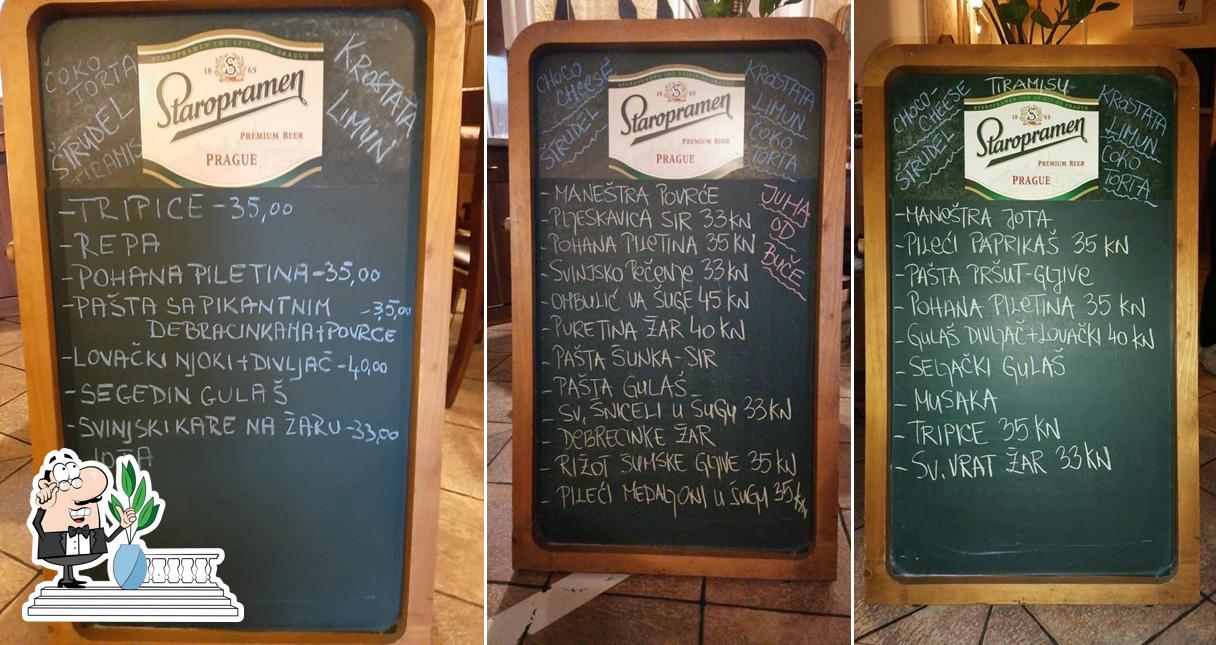 ČOKO
TORTA
ŠTRUDEL
TIRAMIS
STAROPRAMEN THE SPIRIT OF PRAGUE
1869
Staropramen
PREMIUM BEER
PRAGUE
KROSTATA
LIMUN
-TRIPICE -35,00
-REPA
-POHANA PILETINA -35,00
-PAŠTA SA PIKANTNIM -35,00
DEBRACINKAMA+POVRĆE
-LOVAČKI NJOKI+DIVLJAČ -40,00
-SEGEDIN GULAŠ
-SVINJSKI KARE NA ŽARU -33,00
JOTA
CHOCO
CHEESE
ŠTRUDEL
1869
Staropramen
PREMIUM BEER
PRAGUE
KROSTATA
LIMUN
ČOKO
TORTA
-MANEŠTRA POVRĆE
-PLJESKAVICA SIR 33 KN
-POHANA PILETINA 35 KN
-SVINJSKO PEČENJE 33 KN
-OMBULIĆ VA ŠUGE 45 KN
-PURETINA ŽAR 40 KN
-PAŠTA ŠUNKA-SIR
-PAŠTA GULAŠ
-SV, ŠNICELI U ŠUGU 33 KN
-DEBRECINKE ŽAR
-RIŽOT ŠUMSKE GLJIVE 35 KN
-PILEĆI MEDALJONI U ŠUGU 35 KN
JUHA
OD
BUČE
TIRAMISU
CHOCO-
CHEESE
ŠTRUDEL
1869
Staropramen
PREMIUM BEER
PRAGUE
KROSTATA
LIMUN
ČOKO
TORTA
-MANOŠTRA JOTA
-PILEĆI PAPRIKAŠ 35 KN
-PAŠTA PRŠUT-GLJIVE
-POHANA PILETINA 35 KN
-GULAŠ DIVLJAČ+LOVAČKI 40 KN
-SELJAČKI GULAŠ
-MUSAKA
-TRIPICE 35 KN
-SV. VRAT ŽAR 33 KN